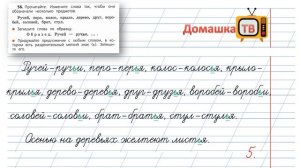 56. Прочитайте. Измените слова так, чтобы они
обозначали несколько предметов.
Ручей, перо, колос, крыло, дерево, друг, воробей, соловей, брат, стул.
Запишите слова по образцу.
Образец. Ручей — ручьи, ...
Придумайте предложение с любым словом, в котором есть разделительный мягкий знак (ь). Запишите его.
Домашка
ТВ
Ручей-ручьи, перо-перья, колос-колосья, крыло-
крылья, дерево-деревья, друг-друзья, воробей-воробьи,
соловей-соловьи, брат-братья, стул-стулья.
Осенью на деревьях желтеют листья.
5.